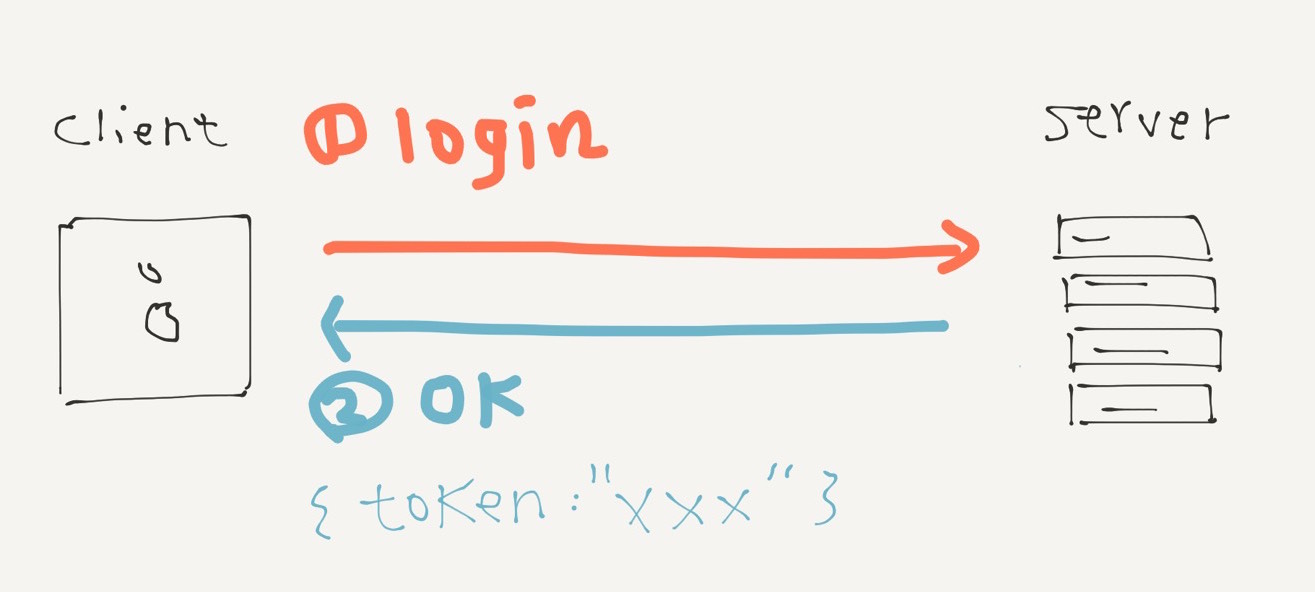 client
① login
server
② OK
{ token : "xxx" }